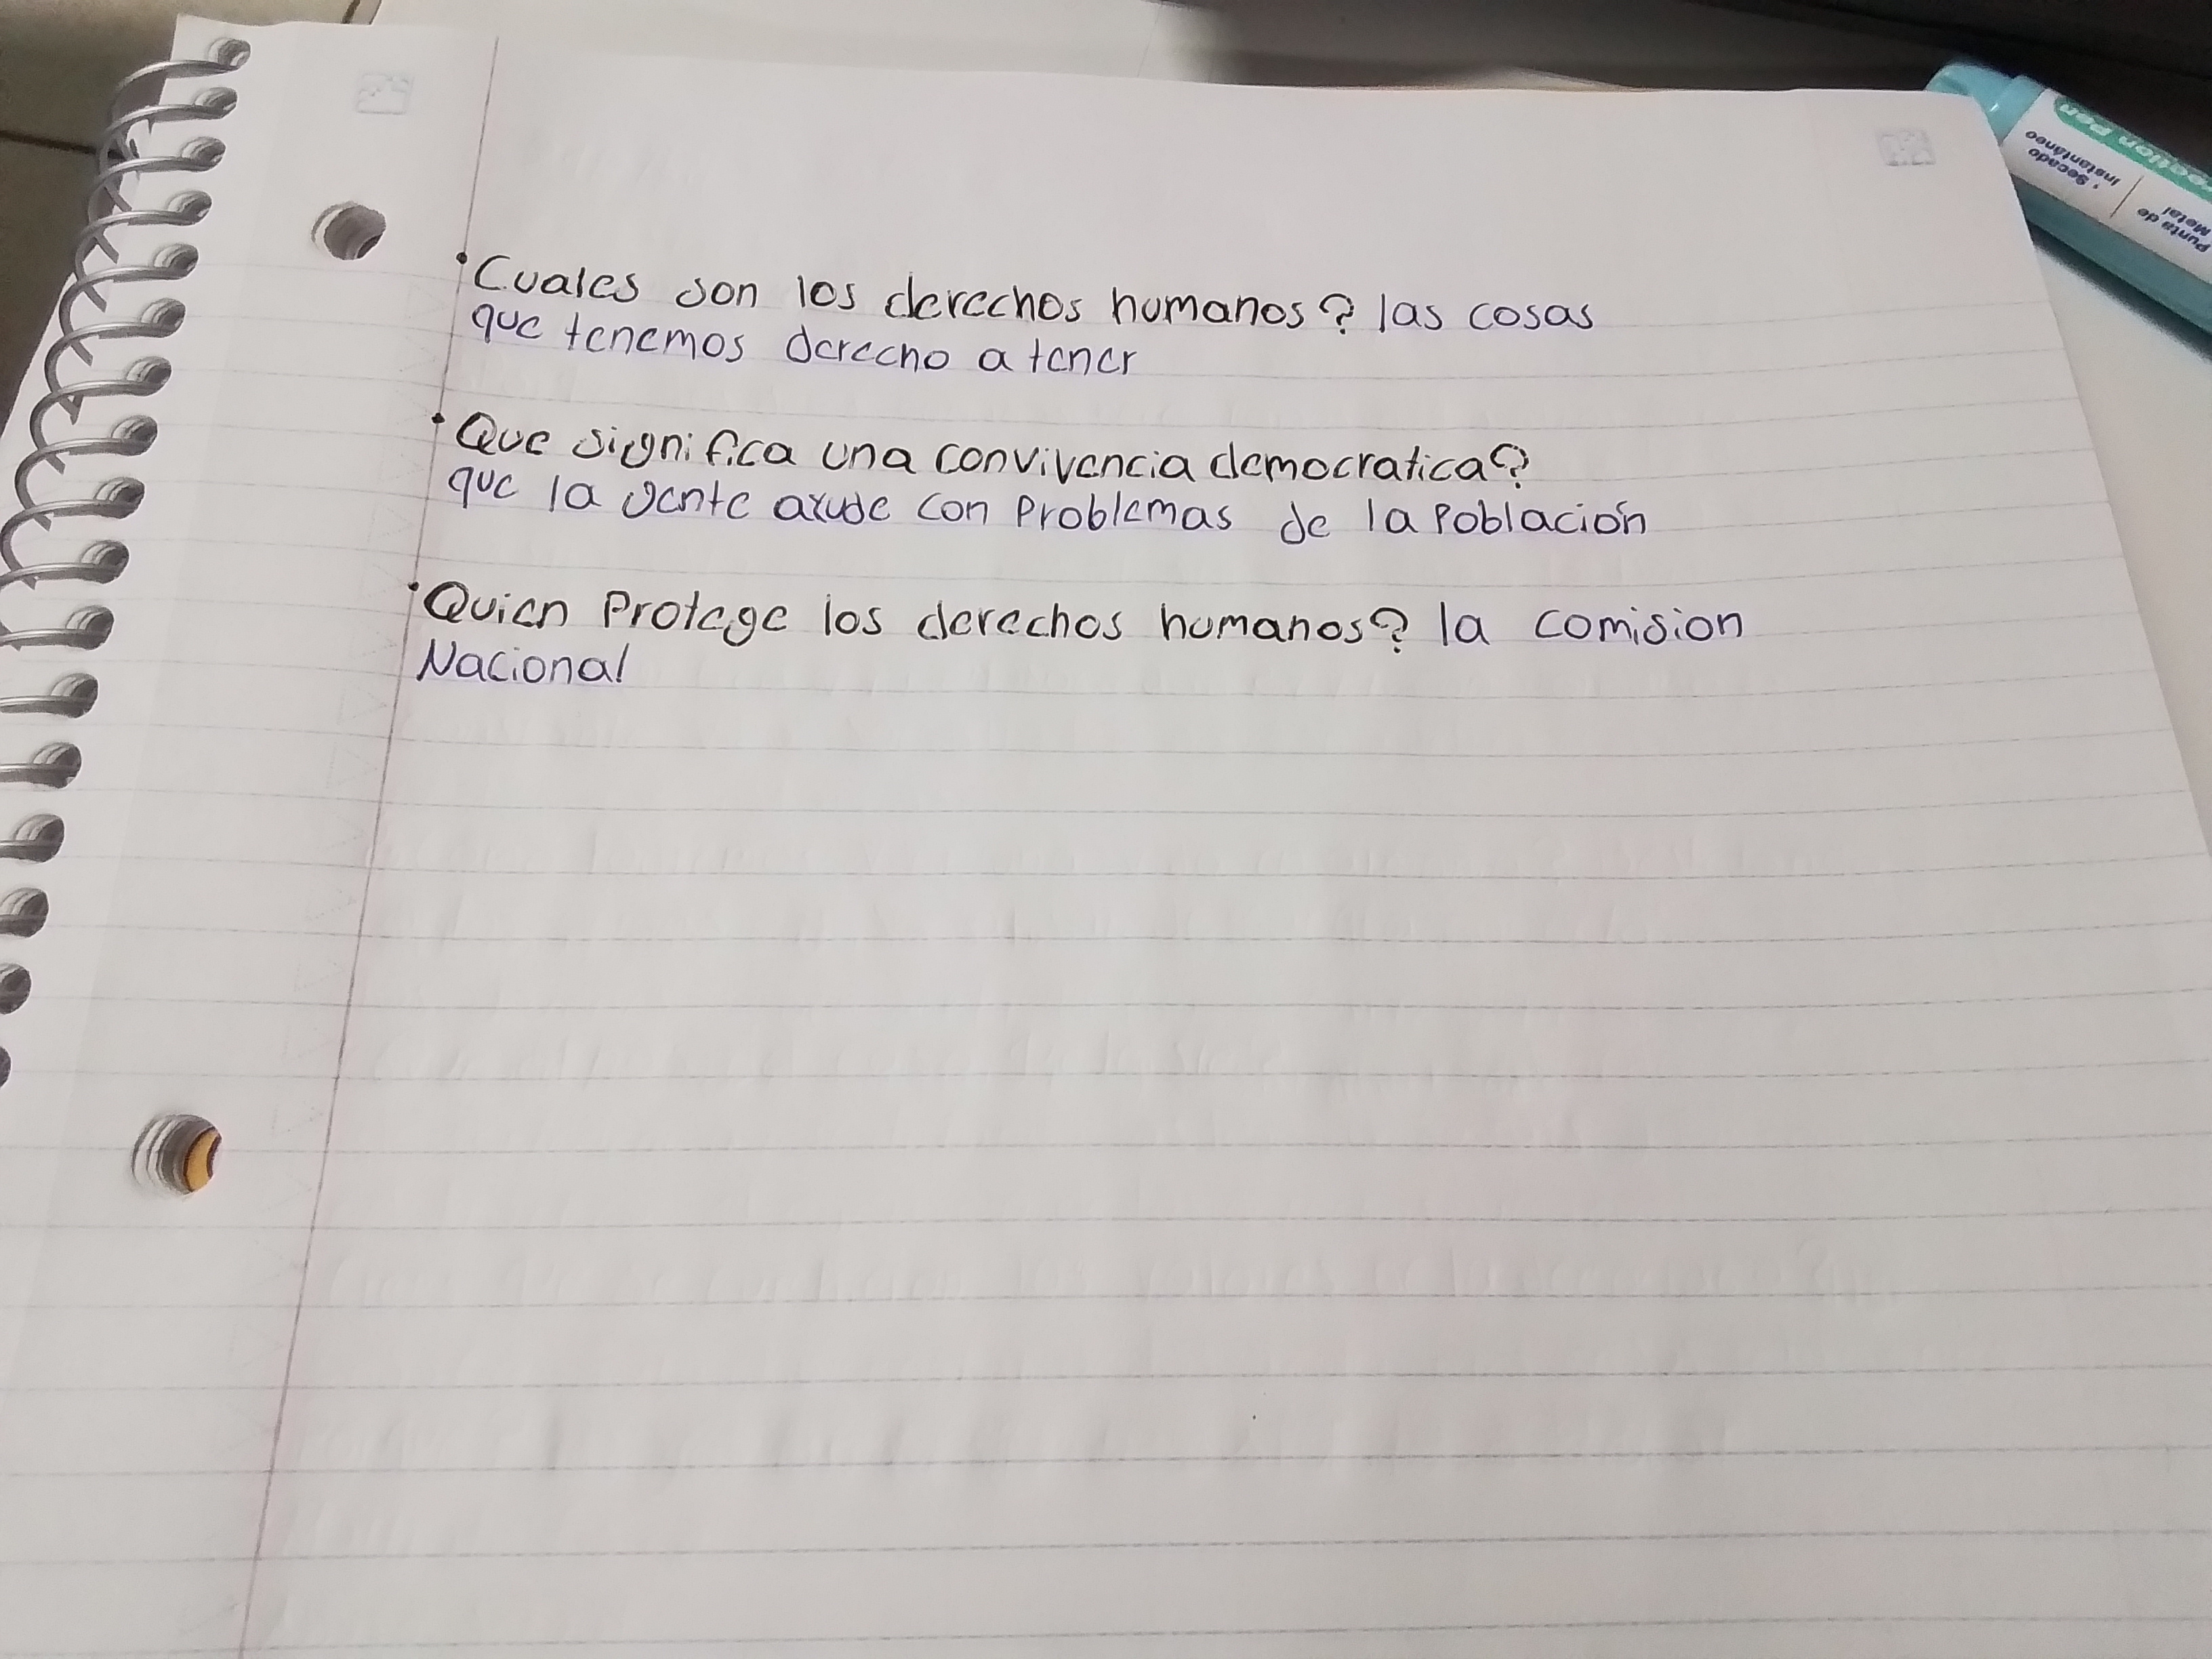 • Cuales son los derechos humanos? las cosas
que tenemos derecho a tener
• Que significa una convivencia democratica?
que la gente ayude con problemas de la Población
• Quien Protege los derechos humanos? la comision
Nacional
Punta de Metal
• Secado Instantáneo